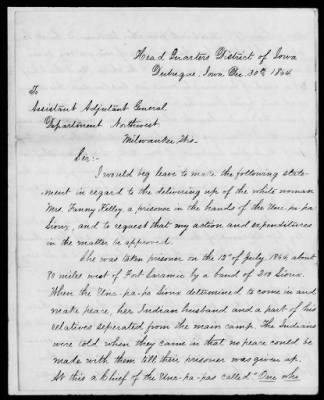 Head Quarters District of Iowa
Dubuque, Iowa, Dec. 30th 1864
To
Assistant Adjutant General
Department Northwest
Milwaukee Wis.
Sir:-
I would beg leave to make the following state-
ment in regard to the delivering up of the white woman
Mrs. Fanny Kelley, a prisoner in the hands of the Unc-pa-pa
Sioux, and to request that my action and expenditures
in the matter be approved.
She was taken prisoner on the 12th of July, 1864, about
90 miles west of Fort Laramie by a band of 200 Sioux.
When the Unc-pa-pa Sioux determined to come in and
make peace, her Indian husband and a part of his
relatives seperated from the main camp. The Indians
were told when they came in that no peace could be
made with them till their prisoner was given up.
At this a Chief of the Unc-pa-pas called "One who